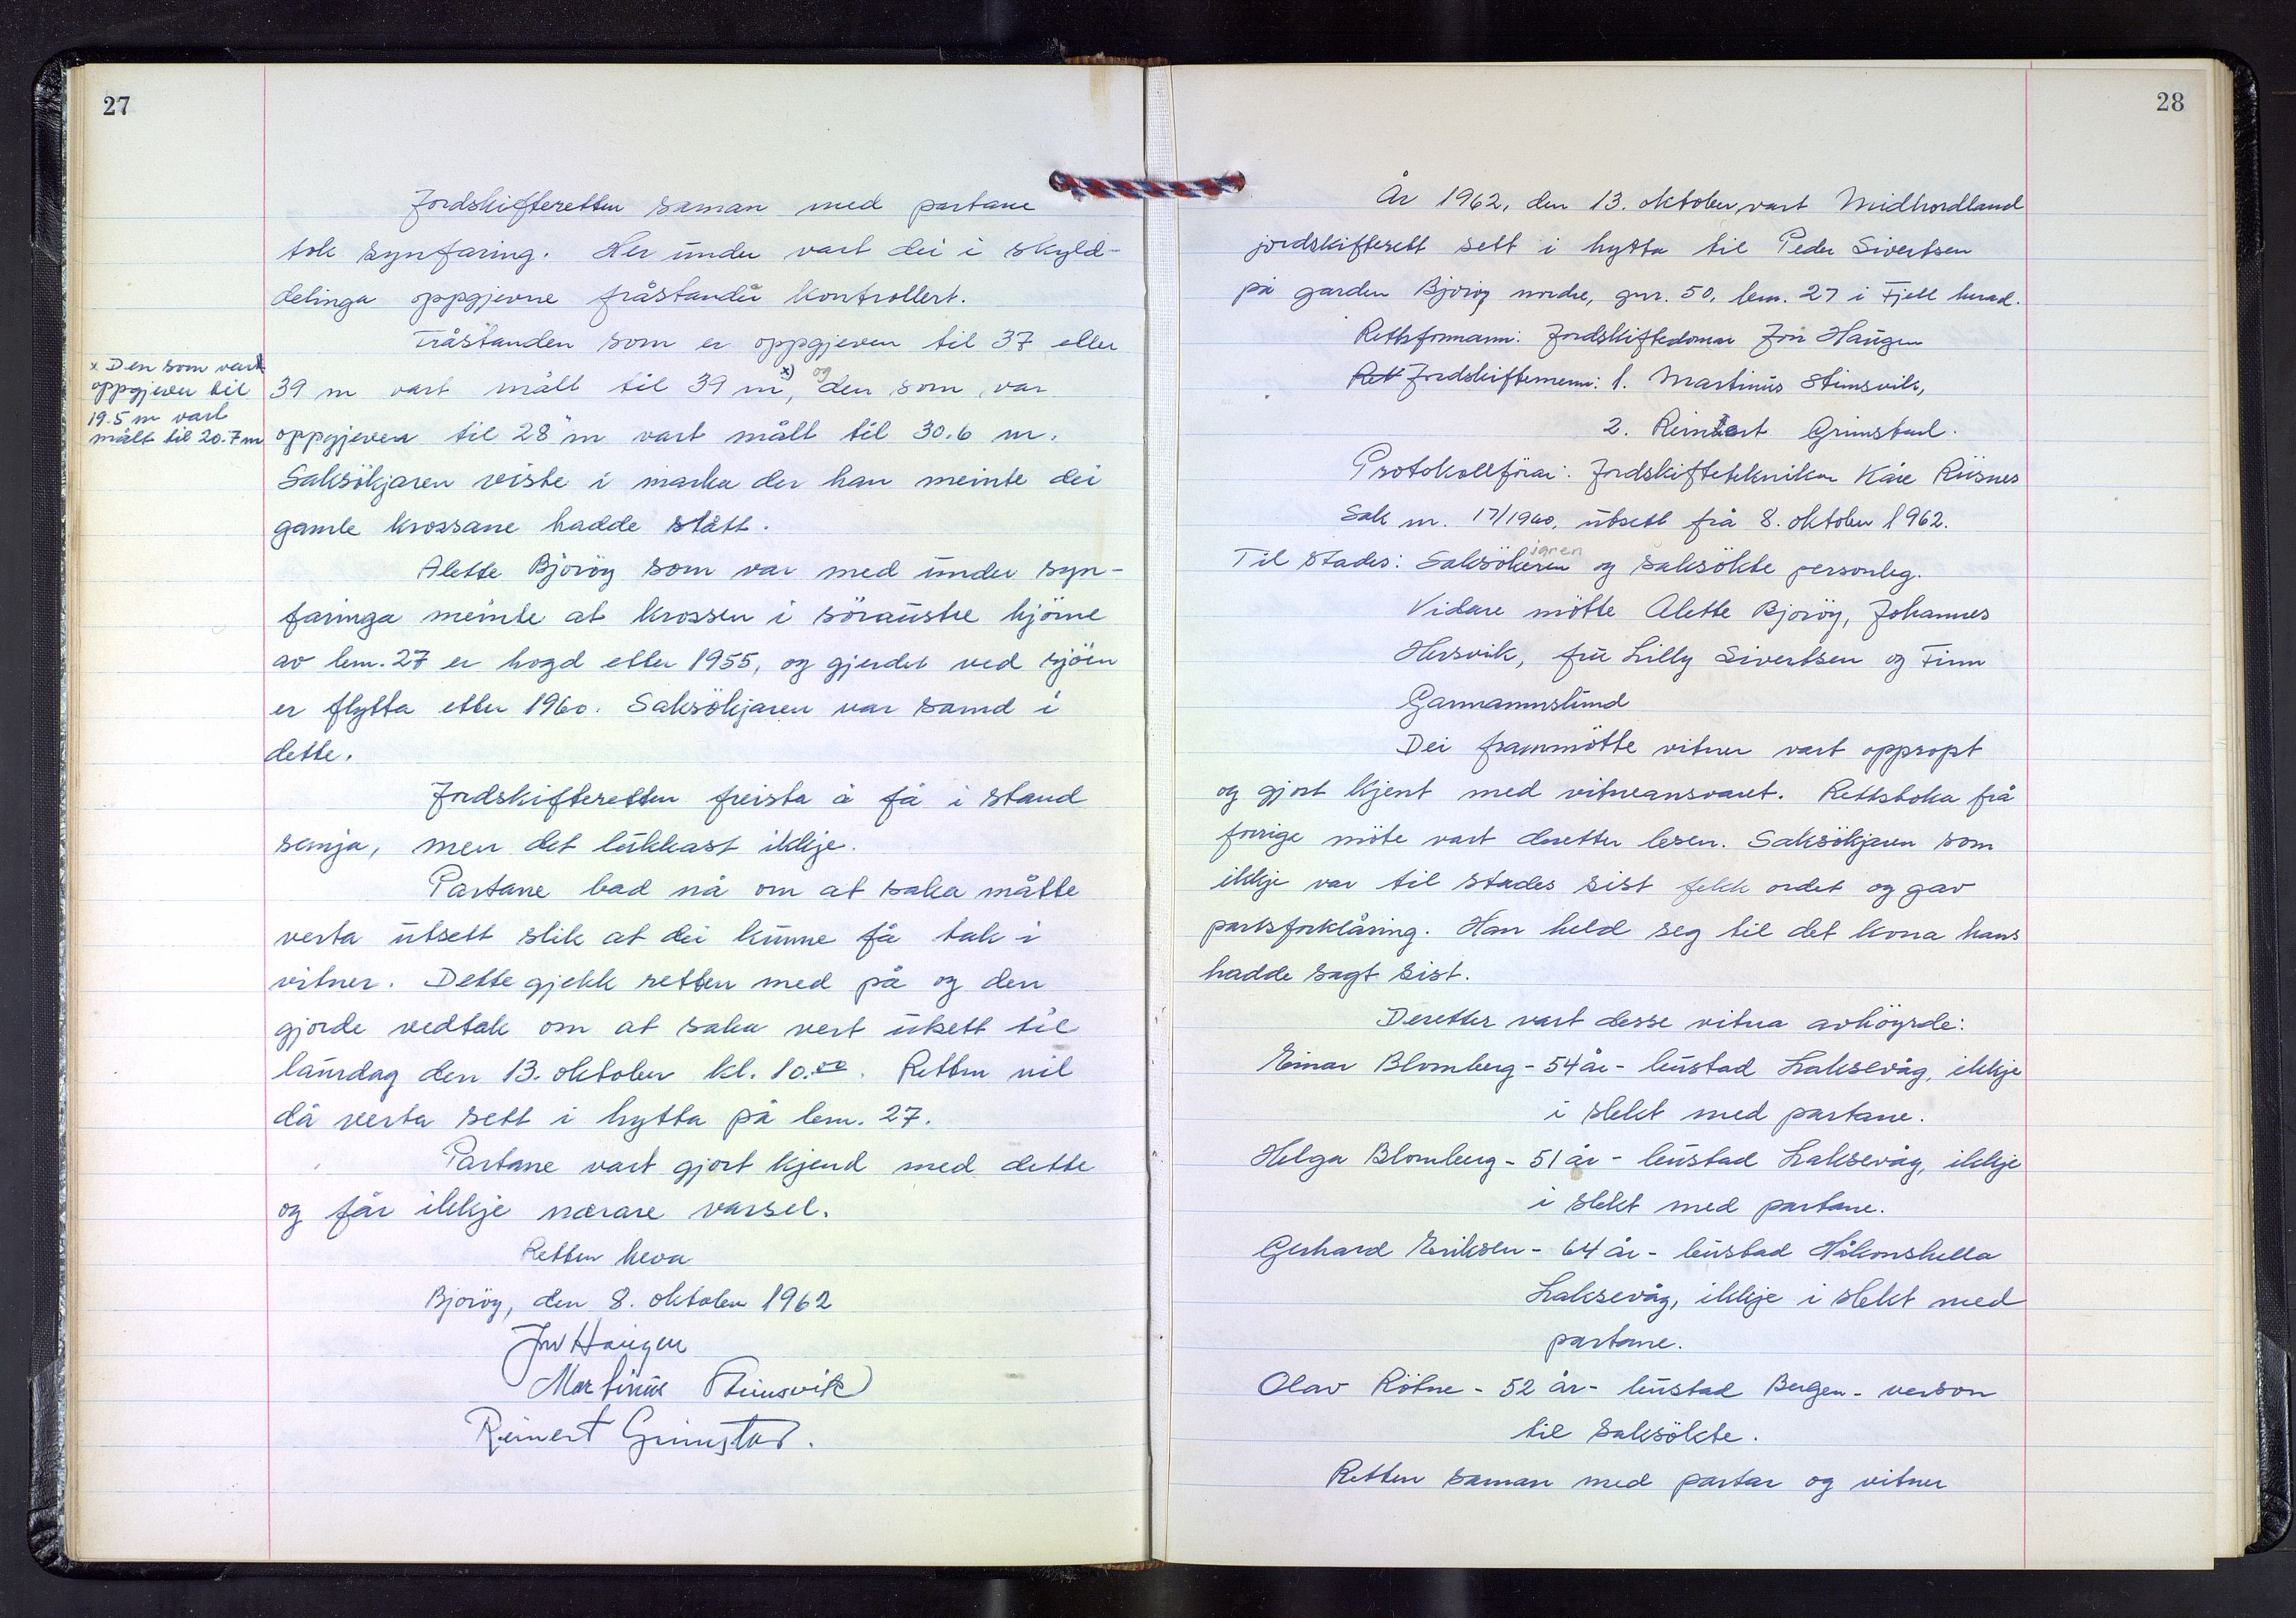 27
Jordskifteretten saman med partane
tok synfaring. Her under vart dei i skyld-
delinga oppgjevne fråstander kontrollert.
Fråstanden som er oppgjeven til 37 eller
39 m vart målt til 39 m x), og den som var
oppgjeven til 28 m vart målt til 30.6 m.
x Den som vart
oppgjeven til
19.5 m vart
målt til 20.7 m
Saksökjaren viste i marka der han meinte dei
gamle krossane hadde stått.
Alette Bjoröy som var med under syn-
faringa meinte at krossen i söraustre hjörne
av bnr. 27 er hogd etter 1955, og gjerdet ved sjöen
er flytta etter 1960. Saksökjaren var samd i
dette.
Jordskifteretten freista å få i stand
semja, men det lukkast ikkje.
Partane bad nå om at saka måtte
verta utsett slik at dei kunne få tak i
vitner. Dette gjekk retten med på og den
gjorde vedtak om at saka vert utsett til
laurdag den 13. oktober kl. 10.00. Retten vil
då verta sett i hytta på bnr. 27.
Partane vart gjort kjend med dette
og får ikkje nærare varsel.
Retten heva
Bjoröy, den 8. oktober 1962
Jon Haugen
Martinus Stimsvik
Reinert Grimstad.
28
År 1962, den 13. oktober, vart Midhordland
jordskifterett sett i hytta til Peder Sivertsen
på garden Bjoröy nordre, gnr. 50, bnr. 27 i Fjell herad.
Rettsformann: Jordskiftedomar Jon Haugen
Ret Jordskiftemenn: 1. Martinus Stimsvik,
2. Reinert Grimstad.
Protokollförar: Jordskiftetekniker Kåre Riisnes
Sak nr. 17/1960, utsett frå 8. oktober 1962.
Til stades: Saksökjaren og saksökte personleg.
Vidare mötte Alette Bjoröy, Johannes
Hersvik, fru Lilly Sivertsen og Finn
Garmannslund
Dei frammötte vitner vart oppropt
og gjort kjent med vitneansvaret. Rettsboka frå
forrige möte vart deretter lesen. Saksökjaren som
ikkje var til stades sist fekk ordet og gav
partsforklåring. Han held seg til det kona hans
hadde sagt sist.
Deretter vart desse vitna avhöyrde:
Einar Blomberg - 54 år - bustad Laksevåg, ikkje
i slekt med partane.
Helga Blomberg - 51 år - bustad Laksevåg, ikkje
i slekt med partane.
Gerhard Eriksen - 64 år - bustad Håkonshella
Laksevåg, ikkje i slekt med
partane.
Olav Rötne - 52 år - bustad Bergen - verson
til saksökte.
Retten saman med partar og vitner